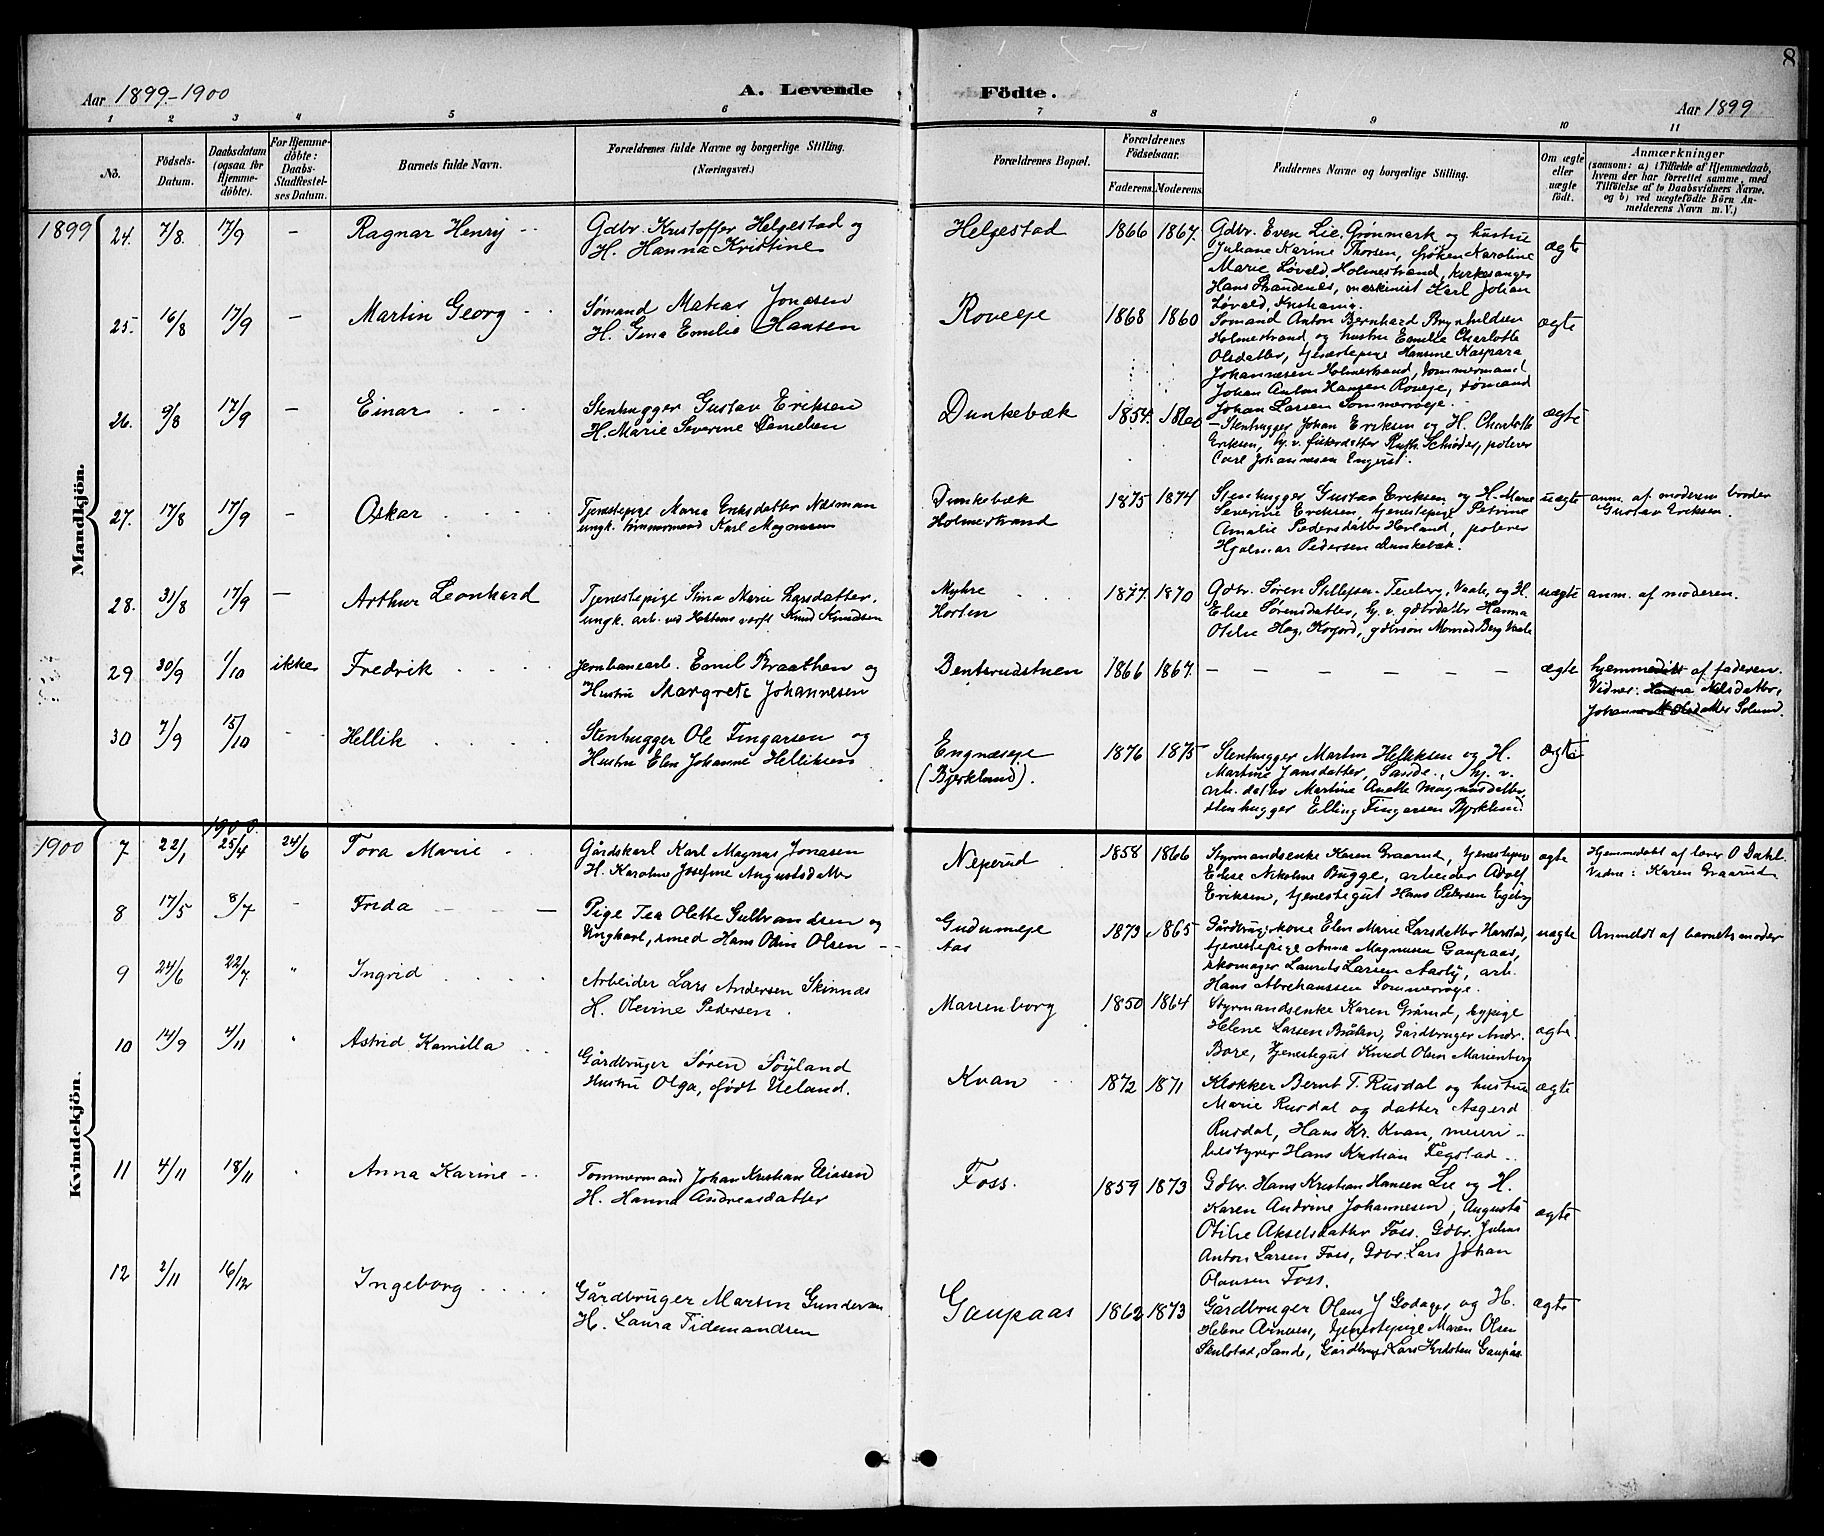 8
Aar 1899-1900
A. Levende
Födte.
Aar 1899
1 2 3 4 5 6 7 8 9 10 11
No.
Födsels-Datum.
Daabsdatum (ogsaa for Hjemmedöbte).
For Hjemmedöbte: Daabs-Stadfæstelses Datum.
Barnets fulde Navn.
Forældrenes fulde Navne og borgerlige Stilling.
(Næringsvei.)
Forældrenes Bopæl.
Forældrenes Födselsaar.
Faderens. Moderens.
Faddernes Navne og borgerlige Stilling.
Om ægte eller uægte födt.
Anmærkninger
(saasom: a) i Tilfælde af Hjemmedaab,
hvem der har forrettet samme, med
Tilföielse af to Daabsvidners Navne.
og b) ved uægtefödte Börn An-
melderens Navn m. V.)
Mandkjön.
1899
24. 7/8. 17/9 – Ragnar Henry
Gdbr. Kristoffer Helgestad og
H. Hanna Kristine
Helgestad
1866 1867.
Gdbr. Even Lie, Grønmark og hustru
Juliane Karine Thorsen, frøken Karoline
Marie Løvald, Holmestrand, kirkesanger
Hans Strandenes, maskinist Karl Johan
Løvald, Kristiania.
ægte
25. 16/8 17/9 – Martin Georg
Sømand Matias Jonasen
H. Gina Emilie Hansen
Roveje
1868 1860
Sømand Anton Bernhard Brynhildsen
Holmestrand, og hustru Emilie Charlotte
Olsdatter, tjenestepige Hansine Kaspara
Johannesen Holmestrand, tømmermand
Johan Anton Hansen Roveje, sømand
Johan Larsen Sommerrøje.
ægte
26. 9/8 17/9 – Einar
Stenhugger Gustav Eriksen
H. Marie Severine Danielsen
Dunkebæk
1854. 1860
– Stenhugger Johan Eriksen og H. Charlotte
Eriksen, hj. v. fiskerdatter Ruth Schrøder, polerer
Carl Johannesen Engvist.
ægte
27. 17/8 17/9 – Oskar
Tjenestepige Maria Eriksdatter
ungk. tømmermand Karl Magnusen
Dunkebæk
Holmestrand
1875 1874
Stenhugger Gustav Eriksen og H. Marie
Severine Eriksen, tjenestepige Petrine
Amalie Pedersdatter Hovland, polerer
Hjalmar Pedersen Dunkebæk.
uægte
anm. af moderens broder
Gustav Eriksen.
28. 31/8 17/9 – Arthur Leonhard
Tjenestepige Stina Marie Larsdatter,
ungk. arb. ved Hortens værft Knud Knudsen
Myhre
Horten
1877. 1870
Gdbr. Søren Stillefsen Teieberg, Vaale, og H.
Elise Sørensdatter, hj. v. gdbrdatter Hanna
Otilie Hag, gdbrsøn Monrad Berg Vaale
uægte
anm. af moderen.
29 30/9 1/10 ikke Fredrik
Jernbanearb. Emil Braathen og
Hustru Margrete Johannesen
Bentsrudstuen
1866 1867.
– – – – – –
ægte
hjemmedøbt af faderen.
Vidner: Hanna Nilsdatter,
Johanne M Olsdatter Solund.
30 7/9 15/10 Hellik
Stenhugger Ole Fingarsen og
Hustru Elen Johanne Helliksen
Engnæseje
(Bjerklund).
1876 1875
Stenhugger Martin Helliksen og H.
Martine Jansdatter, Sande, hj. v.
arb. datter Martine Anette Magnusdatter,
stenhugger Elling Fingarsen Bjerklund.
ægte
Kvindekjön.
1900
1900.
7 22/1 25/4 24/6 Tora Marie
Gårdskarl Karl Magnus Jonasen
H. Karoline Josefine Augustsdatter
Neperud
1858 1866
Styrmandsenke Karen Graarud, tjenestepige
Elise Nikoline Bugge, arbeider Adolf
Eriksen, tjenestegut Hans Petersen Egeberg
ægte
Hjemmedøbt af lærer O Dahl.
Vidne: Karen Graarud
8 17/5 8/7 Frida
Pige Tea Olette Gulbrandsen og
Ungkarl, smed Hans Odin Olsen
Gudumeje
Aas
1873 1865
Gårdbrugerkone Elen Marie Larsdatter Harstad,
tjenestepige Anna Magnusen Gaupaas,
skomager Laurits Larsen Aasly, arb.
Hans Abrehanssen Sommerrøje.
uægte
Anmeldt af barnets moder
9 24/6 22/7 " Ingrid
Arbeider Lars Andersen Skinnæs
H. Olevine Pedersen.
Marienborg
1850 1864
Styrmandsenke Karen Grårud, hypige
Helene Larsen Bråtan, Gårdbruger Andr.
Bore, tjenestegut Knud Olsen Marienborg
ægte.
10 14/9 4/11 " Astrid Kamilla
Gårdbruger Søren Söyland
Hustru Olga, født Ueland.
Kvan
1872 1871
Klokker Bernt T. Rusdal og hustru
Marie Rusdal og datter Asgerd
Rusdal, Hans Kr. Kvan, meieri-
bestyrer Hans Kristian Fegstad.
ægte
11 4/11 18/11 Anna Karine
Tømmermand Johan Kristian Eliasen
H. Hanna Andreasdatter
Foss.
1859 1873
Gdbr. Hans Kristian Hansen Lie og H.
Karen Andrine Johannesen, Augusta
Otilie Akselsdatter Foss. Gdbr. Julius
Anton Larsen Foss, Gdbr. Lars Johan
Olausen Foss.
ægte
12 2/11 16/12 Ingeborg
Gårdbruger Martin Gundersen
H. Laura Tidemandsen
Gaupaas
1862 1873
Gårdbruger Olaus J Godager og H.
Helene Arnesen, tjenestepige Maren Olsen
Skulstad, Sande, Gårdbruger Lars Kristen Gaupås
ægte